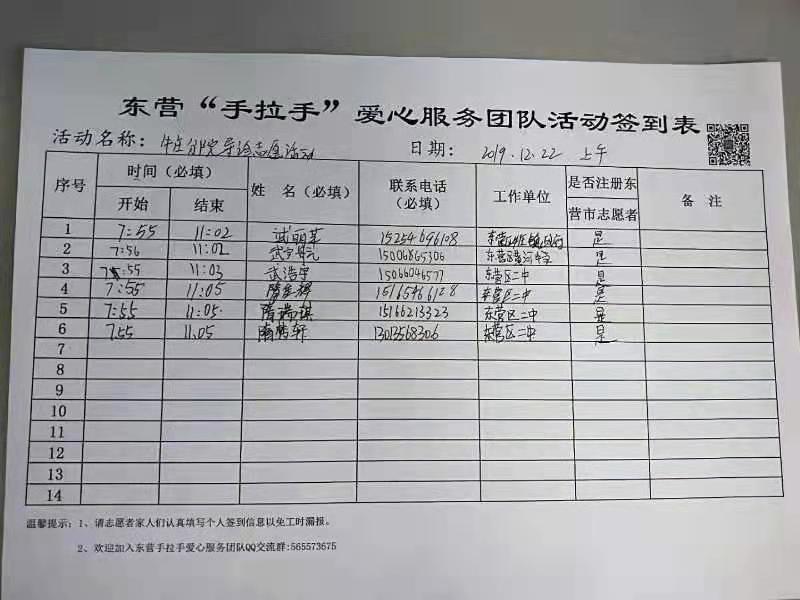 东营“手拉手”爱心服务团队活动签到表
活动名称：牛庄分院导诊志愿活动 日期：2019.12.22 上午
序号 时间（必填） 姓 名（必填） 联系电话（必填） 工作单位 是否注册东营市志愿者 备 注
开始 结束
1 7:55 11:02 武丽苹 15254696108 东营区牛庄镇 是
2 7:56 11:02 武 元 15006865306 东营区 河 是
3 7:55 11:03 武浩宇 15066046577 东营区二中 是
4 7:55 11:05 隋 15165466128 东营区二中 是
5 7:55 11:05 隋瑞琪 15166213323 东营区二中 是
6 7.55 11.05 轩 13013568306 东营区二中 是
7
8
9
10
11
12
13
14
温馨提示：1、请志愿者家人们认真填写个人签到信息以免工时漏报。
2、欢迎加入东营手拉手爱心服务团队QQ交流群:565573675